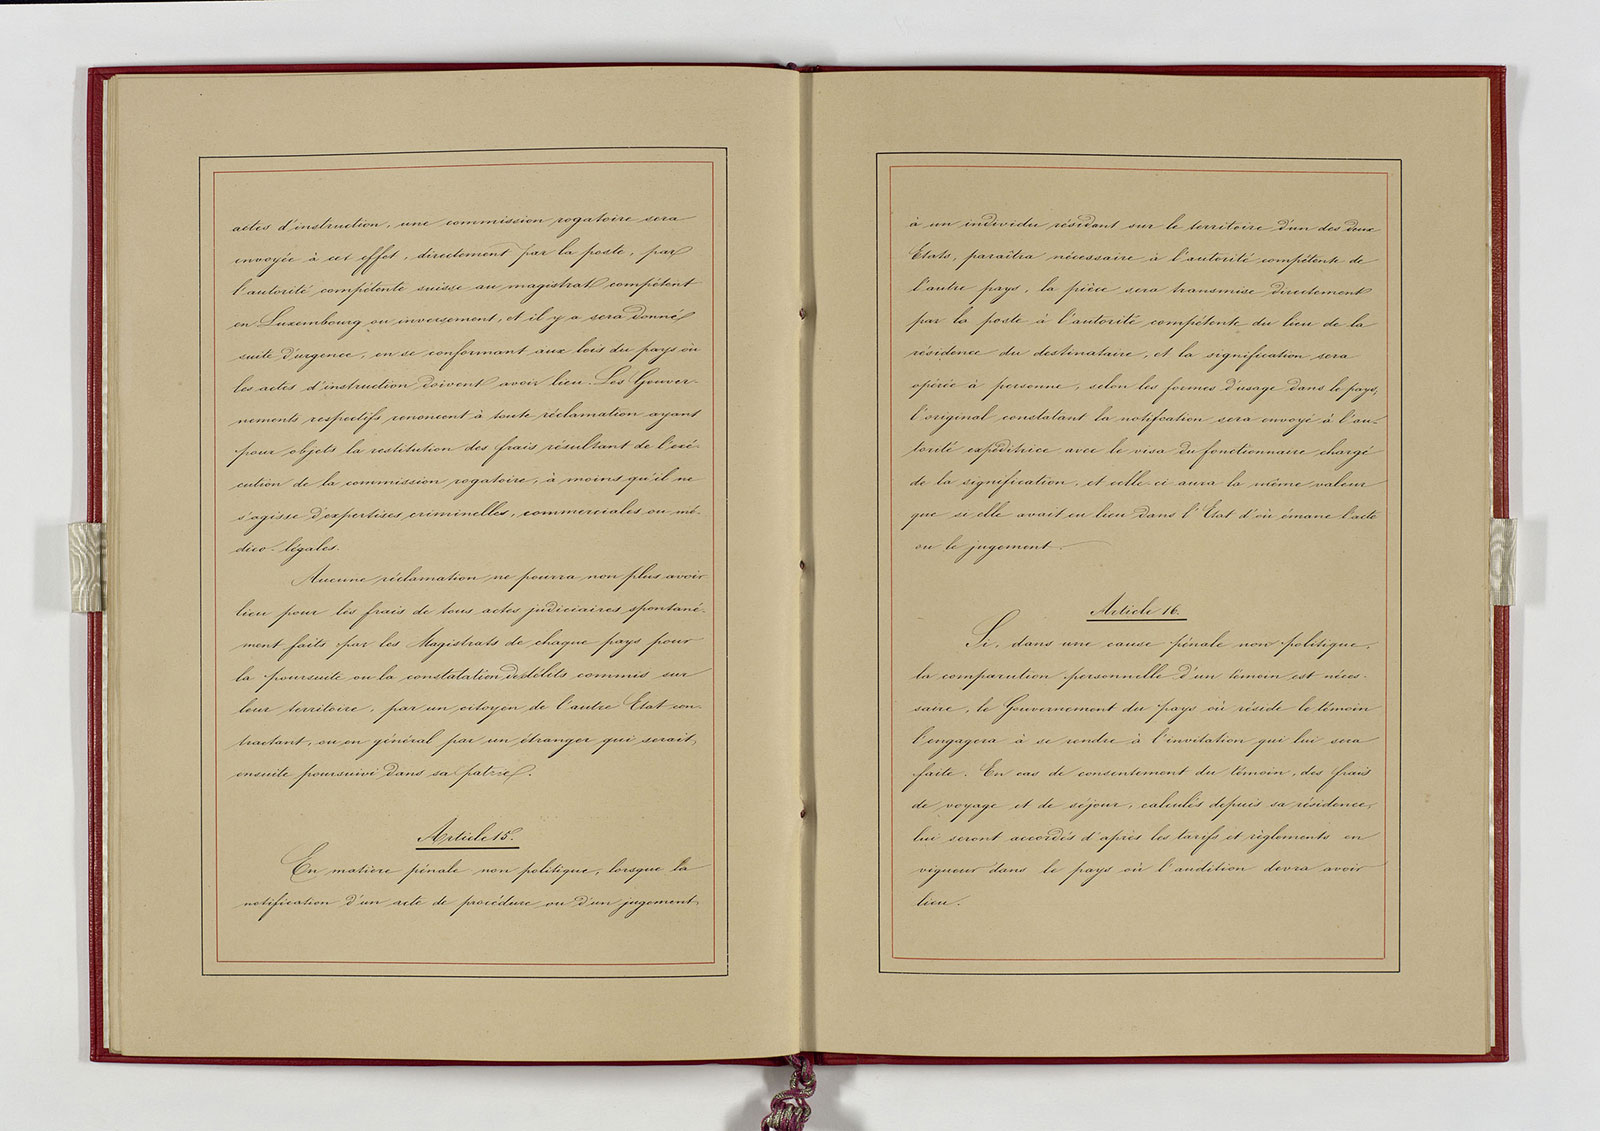 actes d'instruction, une commission rogatoire sera
envoyée à cet effet, directement par la poste, par
l'autorité compétente suisse au magistrat compétent
en Luxembourg ou inversement, et il y a sera donné
suite d'urgence, en se conformant aux lois du pays où
les actes d'instruction doivent avoir lieu. Les Gouver-
nements respectifs renoncent à toute réclamation ayant
pour objets la restitution des frais résultant de l'exé-
cution de la commission rogatoire, à moins qu'il ne
s'agisse d'expertises criminelles, commerciales ou mé-
dico-légales.
Aucune réclamation ne pourra non plus avoir
lieu pour les frais de tous actes judiciaires spontané-
ment faits par les Magistrats de chaque pays pour
la poursuite ou la constatation des délits commis sur
leur territoire, par un citoyen de l'autre Etat con-
tractant, ou en général par un étranger qui serait
ensuite poursuivi dans sa patrie.
Article 15.
En matière pénale non politique, lorsque la
notification d'un acte de procédure ou d'un jugement
à un individu résidant sur le territoire d'un des deux
Etats, paraîtra nécessaire à l'autorité compétente de
l'autre pays, la pièce sera transmise directement
par la poste à l'autorité compétente du lieu de la
résidence du destinataire, et la signification sera
opérée à personne, selon les formes d'usage dans le pays,
l'original constatant la notification sera envoyé à l'au-
torité expéditrice avec le visa du fonctionnaire chargé
de la signification, et celle-ci aura la même valeur
que si elle avait eu lieu dans l'Etat d'où émane l'acte
ou le jugement.
Article 16.
Si, dans une cause pénale non politique,
la comparution personnelle d'un témoin est néces-
saire, le Gouvernement du pays où réside le témoin
l'engagera à se rendre à l'invitation qui lui sera
faite. En cas de consentement du témoin, des frais
de voyage et de séjour, calculés depuis sa résidence,
lui seront accordés d'après les tarifs et règlements en
vigueur dans le pays où l'audition devra avoir
lieu.